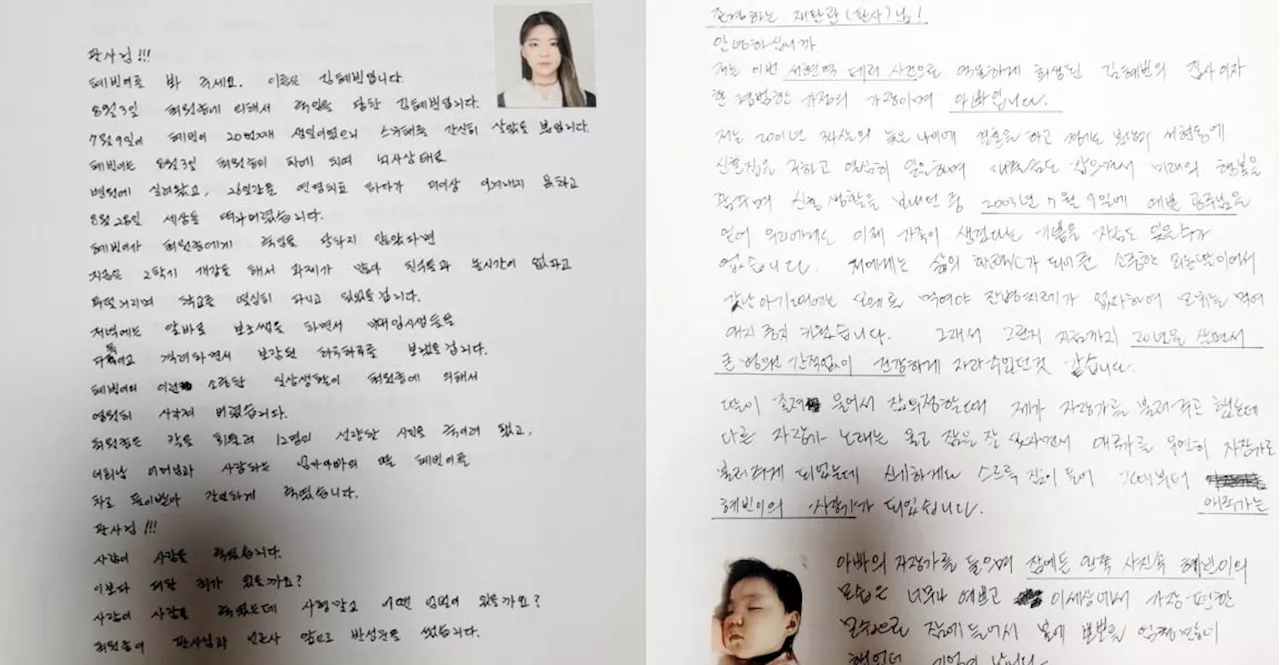 판사님!!!
혜빈이를 봐 주세요. 이름은 김혜빈입니다.
8월3일 최원종에 의해서 죽임을 당한 김혜빈입니다.
7월9일이 혜빈이 20번째 생일이었으니 스무해를 간신히 살았을 뿐입니다.
혜빈이는 8월3일 최원종의 차에 치여 뇌사상태로
병원에 실려왔고, 26일간을 연명치료 하다가 더이상 이겨내지 못하고
8월28일 세상을 떠나버렸습니다.
혜빈이가 최원종에게 죽임을 당하지 않았다면
지금은 2학기 개강을 해서 과제가 많아 친구들과 놀시간이 없다고
투덜거리며 학교를 열심히 다니고 있었을 겁니다.
저녁에는 알바로 보조쌤을 하면서 입시생들을
다독이고 격려하면서 보람된 하루하루를 보냈을겁니다.
혜빈이의 이런 소중한 일상생활이 최원종에 의해서
영원히 사라져 버렸습니다.
최원종은 칼을 휘둘러 12명의 선량한 시민을 죽이려 했고,
어머님과 사랑하는 엄마아빠의 딸 혜빈이를
차로 들이받아 잔인하게 죽였습니다.
판사님!!!
사람이 사람을 죽였습니다.
이보다 더한 죄가 있을까요?
사람이 사람을 죽였는데 사형말고 어떤 엄벌이 있을까요?
최원종이 판사님과 변호사 앞으로 반성문을 썼습니다.
존경하는 재판관(판사)님!
안녕하십니까
저는 이번 서현역 테러 사건으로 억울하게 희생된 김혜빈의 집사이자
한 평범한 가정의 가장이며 아빠입니다.
저는 2001년 34살의 늦은 나이에 결혼을 하고 경기도 분당에 서현동에
신혼집을 구하고 열심히 일을하며 내집도 살면서 미래의 행복을
꿈꾸며 신혼 생활을 보내던 중 2003년 7월 9일에 예쁜 공주님을
얻어 우리에게도 이제 가족이 생겼다는 기쁨을 지금도 잊을수가
없습니다. 저에게는 삶의 전체가 되어준 소중한 외동딸이어서
갓난아기때에는 모유로 먹여야 잔병치레가 없다하여 모유를 먹여
애지중지 키웠습니다. 그래서 그런지 지금까지 20년을 살면서
큰 병원 간적없이 건강하게 자라 수있던것 같습니다.
딸이 졸려 울어서 잠의정할때 제가 자장가를 불러주곤 했는데
다른 자장가 노래는 울고 잠을 잘 못자면서 애국가를 우연히 자장가로
불러주게 되었는데 신기하게도 스르륵 잠이 들어 그때부터 애국가는
혜빈이의 자장가가 되었습니다.
아빠의 자장가를 들으며 잠에든 왼쪽 사진속 혜빈이의
모습은 너무나 예쁘고 이세상에서 가장 편한
모습으로 잠에 들어서 볼에 뽀뽀를
했었던 기억이 납니다